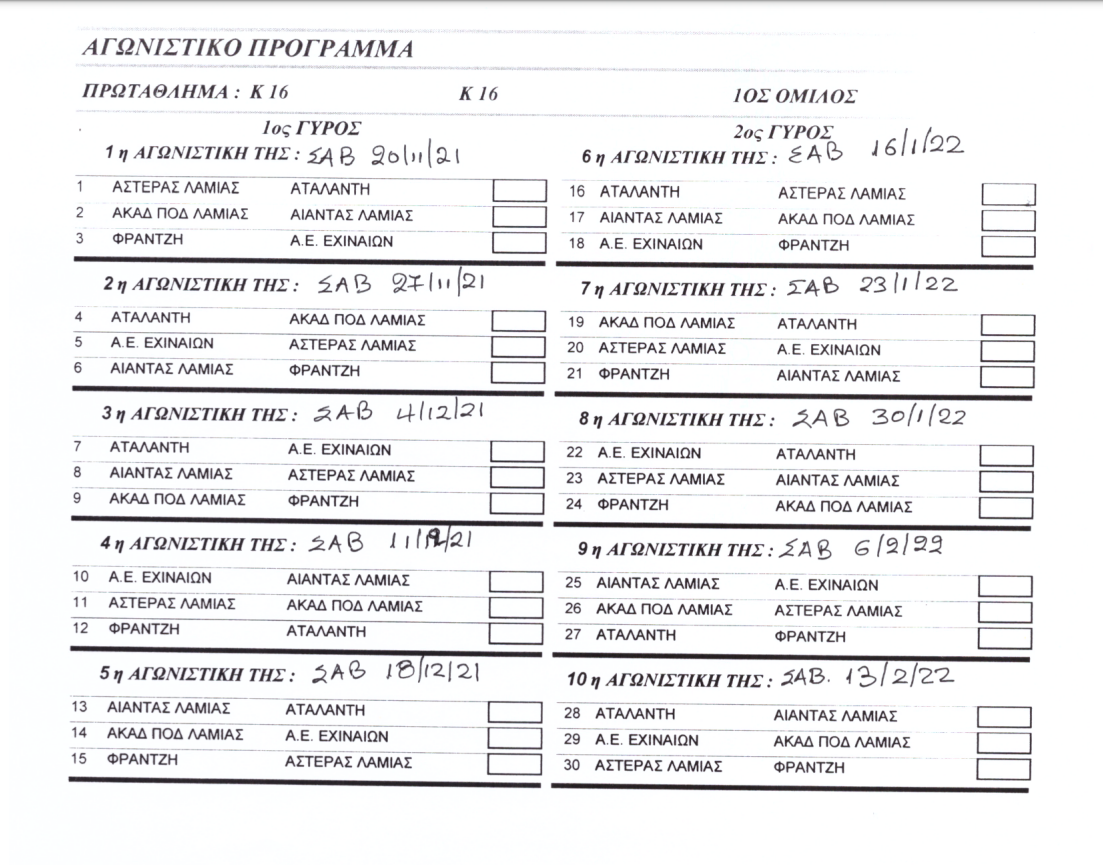 ΑΓΩΝΙΣΤΙΚΟ ΠΡΟΓΡΑΜΜΑ
ΠΡΩΤΑΘΛΗΜΑ : Κ 16 Κ 16 1ΟΣ ΟΜΙΛΟΣ
1ος ΓΥΡΟΣ
1 η ΑΓΩΝΙΣΤΙΚΗ ΤΗΣ : ΣΑΒ 20/11/21
1 ΑΣΤΕΡΑΣ ΛΑΜΙΑΣ ΑΤΑΛΑΝΤΗ
2 ΑΚΑΔ ΠΟΔ ΛΑΜΙΑΣ ΑΙΑΝΤΑΣ ΛΑΜΙΑΣ
3 ΦΡΑΝΤΖΗ Α.Ε. ΕΧΙΝΑΙΩΝ
2 η ΑΓΩΝΙΣΤΙΚΗ ΤΗΣ : ΣΑΒ 27/11/21
4 ΑΤΑΛΑΝΤΗ ΑΚΑΔ ΠΟΔ ΛΑΜΙΑΣ
5 Α.Ε. ΕΧΙΝΑΙΩΝ ΑΣΤΕΡΑΣ ΛΑΜΙΑΣ
6 ΑΙΑΝΤΑΣ ΛΑΜΙΑΣ ΦΡΑΝΤΖΗ
3 η ΑΓΩΝΙΣΤΙΚΗ ΤΗΣ : ΣΑΒ 4/12/21
7 ΑΤΑΛΑΝΤΗ Α.Ε. ΕΧΙΝΑΙΩΝ
8 ΑΙΑΝΤΑΣ ΛΑΜΙΑΣ ΑΣΤΕΡΑΣ ΛΑΜΙΑΣ
9 ΑΚΑΔ ΠΟΔ ΛΑΜΙΑΣ ΦΡΑΝΤΖΗ
4 η ΑΓΩΝΙΣΤΙΚΗ ΤΗΣ : ΣΑΒ 11/12/21
10 Α.Ε. ΕΧΙΝΑΙΩΝ ΑΙΑΝΤΑΣ ΛΑΜΙΑΣ
11 ΑΣΤΕΡΑΣ ΛΑΜΙΑΣ ΑΚΑΔ ΠΟΔ ΛΑΜΙΑΣ
12 ΦΡΑΝΤΖΗ ΑΤΑΛΑΝΤΗ
5 η ΑΓΩΝΙΣΤΙΚΗ ΤΗΣ : ΣΑΒ 18/12/21
13 ΑΙΑΝΤΑΣ ΛΑΜΙΑΣ ΑΤΑΛΑΝΤΗ
14 ΑΚΑΔ ΠΟΔ ΛΑΜΙΑΣ Α.Ε. ΕΧΙΝΑΙΩΝ
15 ΦΡΑΝΤΖΗ ΑΣΤΕΡΑΣ ΛΑΜΙΑΣ
2ος ΓΥΡΟΣ
6 η ΑΓΩΝΙΣΤΙΚΗ ΤΗΣ : ΣΑΒ 16/1/22
16 ΑΤΑΛΑΝΤΗ ΑΣΤΕΡΑΣ ΛΑΜΙΑΣ
17 ΑΙΑΝΤΑΣ ΛΑΜΙΑΣ ΑΚΑΔ ΠΟΔ ΛΑΜΙΑΣ
18 Α.Ε. ΕΧΙΝΑΙΩΝ ΦΡΑΝΤΖΗ
7 η ΑΓΩΝΙΣΤΙΚΗ ΤΗΣ : ΣΑΒ 23/1/22
19 ΑΚΑΔ ΠΟΔ ΛΑΜΙΑΣ ΑΤΑΛΑΝΤΗ
20 ΑΣΤΕΡΑΣ ΛΑΜΙΑΣ Α.Ε. ΕΧΙΝΑΙΩΝ
21 ΦΡΑΝΤΖΗ ΑΙΑΝΤΑΣ ΛΑΜΙΑΣ
8 η ΑΓΩΝΙΣΤΙΚΗ ΤΗΣ : ΣΑΒ 30/1/22
22 Α.Ε. ΕΧΙΝΑΙΩΝ ΑΤΑΛΑΝΤΗ
23 ΑΣΤΕΡΑΣ ΛΑΜΙΑΣ ΑΙΑΝΤΑΣ ΛΑΜΙΑΣ
24 ΦΡΑΝΤΖΗ ΑΚΑΔ ΠΟΔ ΛΑΜΙΑΣ
9 η ΑΓΩΝΙΣΤΙΚΗ ΤΗΣ : ΣΑΒ 6/2/22
25 ΑΙΑΝΤΑΣ ΛΑΜΙΑΣ Α.Ε. ΕΧΙΝΑΙΩΝ
26 ΑΚΑΔ ΠΟΔ ΛΑΜΙΑΣ ΑΣΤΕΡΑΣ ΛΑΜΙΑΣ
27 ΑΤΑΛΑΝΤΗ ΦΡΑΝΤΖΗ
10 η ΑΓΩΝΙΣΤΙΚΗ ΤΗΣ : ΣΑΒ. 13/2/22
28 ΑΤΑΛΑΝΤΗ ΑΙΑΝΤΑΣ ΛΑΜΙΑΣ
29 Α.Ε. ΕΧΙΝΑΙΩΝ ΑΚΑΔ ΠΟΔ ΛΑΜΙΑΣ
30 ΑΣΤΕΡΑΣ ΛΑΜΙΑΣ ΦΡΑΝΤΖΗ